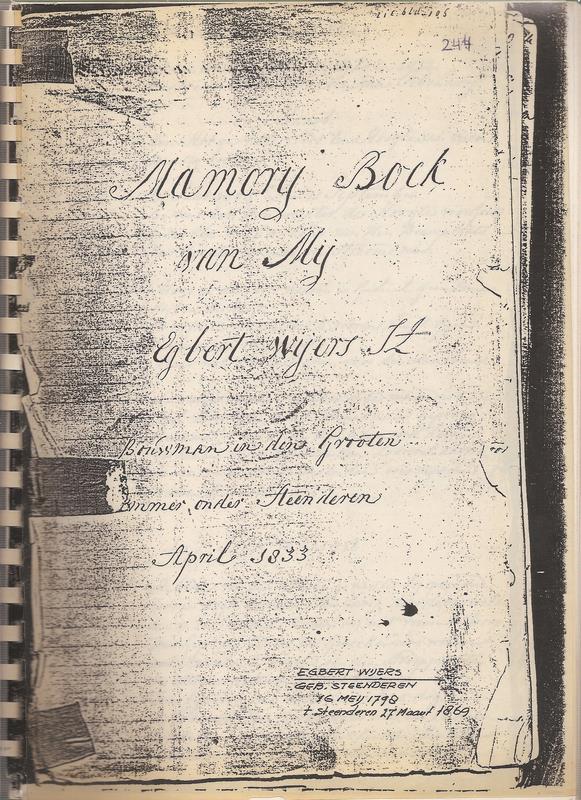 244
Mamory Boek
van My
Egbert Wyers
Bouwman in den Grooten
onder Steenderen
April 1833
EGBERT WYERS
GEB. STEENDEREN
16 MEIJ 1798
† Steenderen 27 Maart 1869